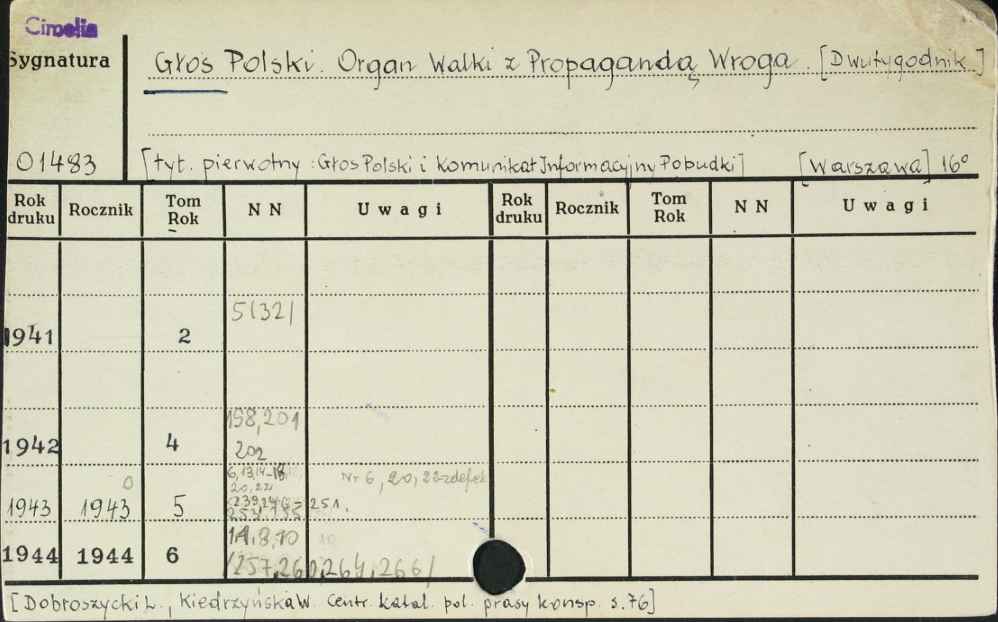 Cimelia
Sygnatura
Głos Polski. Organ Walki z Propagandą Wroga. [Dwutygodnik]
01483 [tyt. pierwotny: Głos Polski i Komunikat Informacyjny Pobudki] [Warszawa] 16°
Rok druku Rocznik Tom Rok NN Uwagi Rok druku Rocznik Tom Rok NN Uwagi
5(32)
1941 2
198, 201
1942 4 202
6, 13, 14-18
0 20, 22 Nr 6, 20, 22-defekt
1943 1943 5 251.
1944 1944 6 8, 10
/257, 264, 266/
[Dobroszycki L., Kiedrzyńska W. Centr. katal. pol. prasy konsp. s. 76]